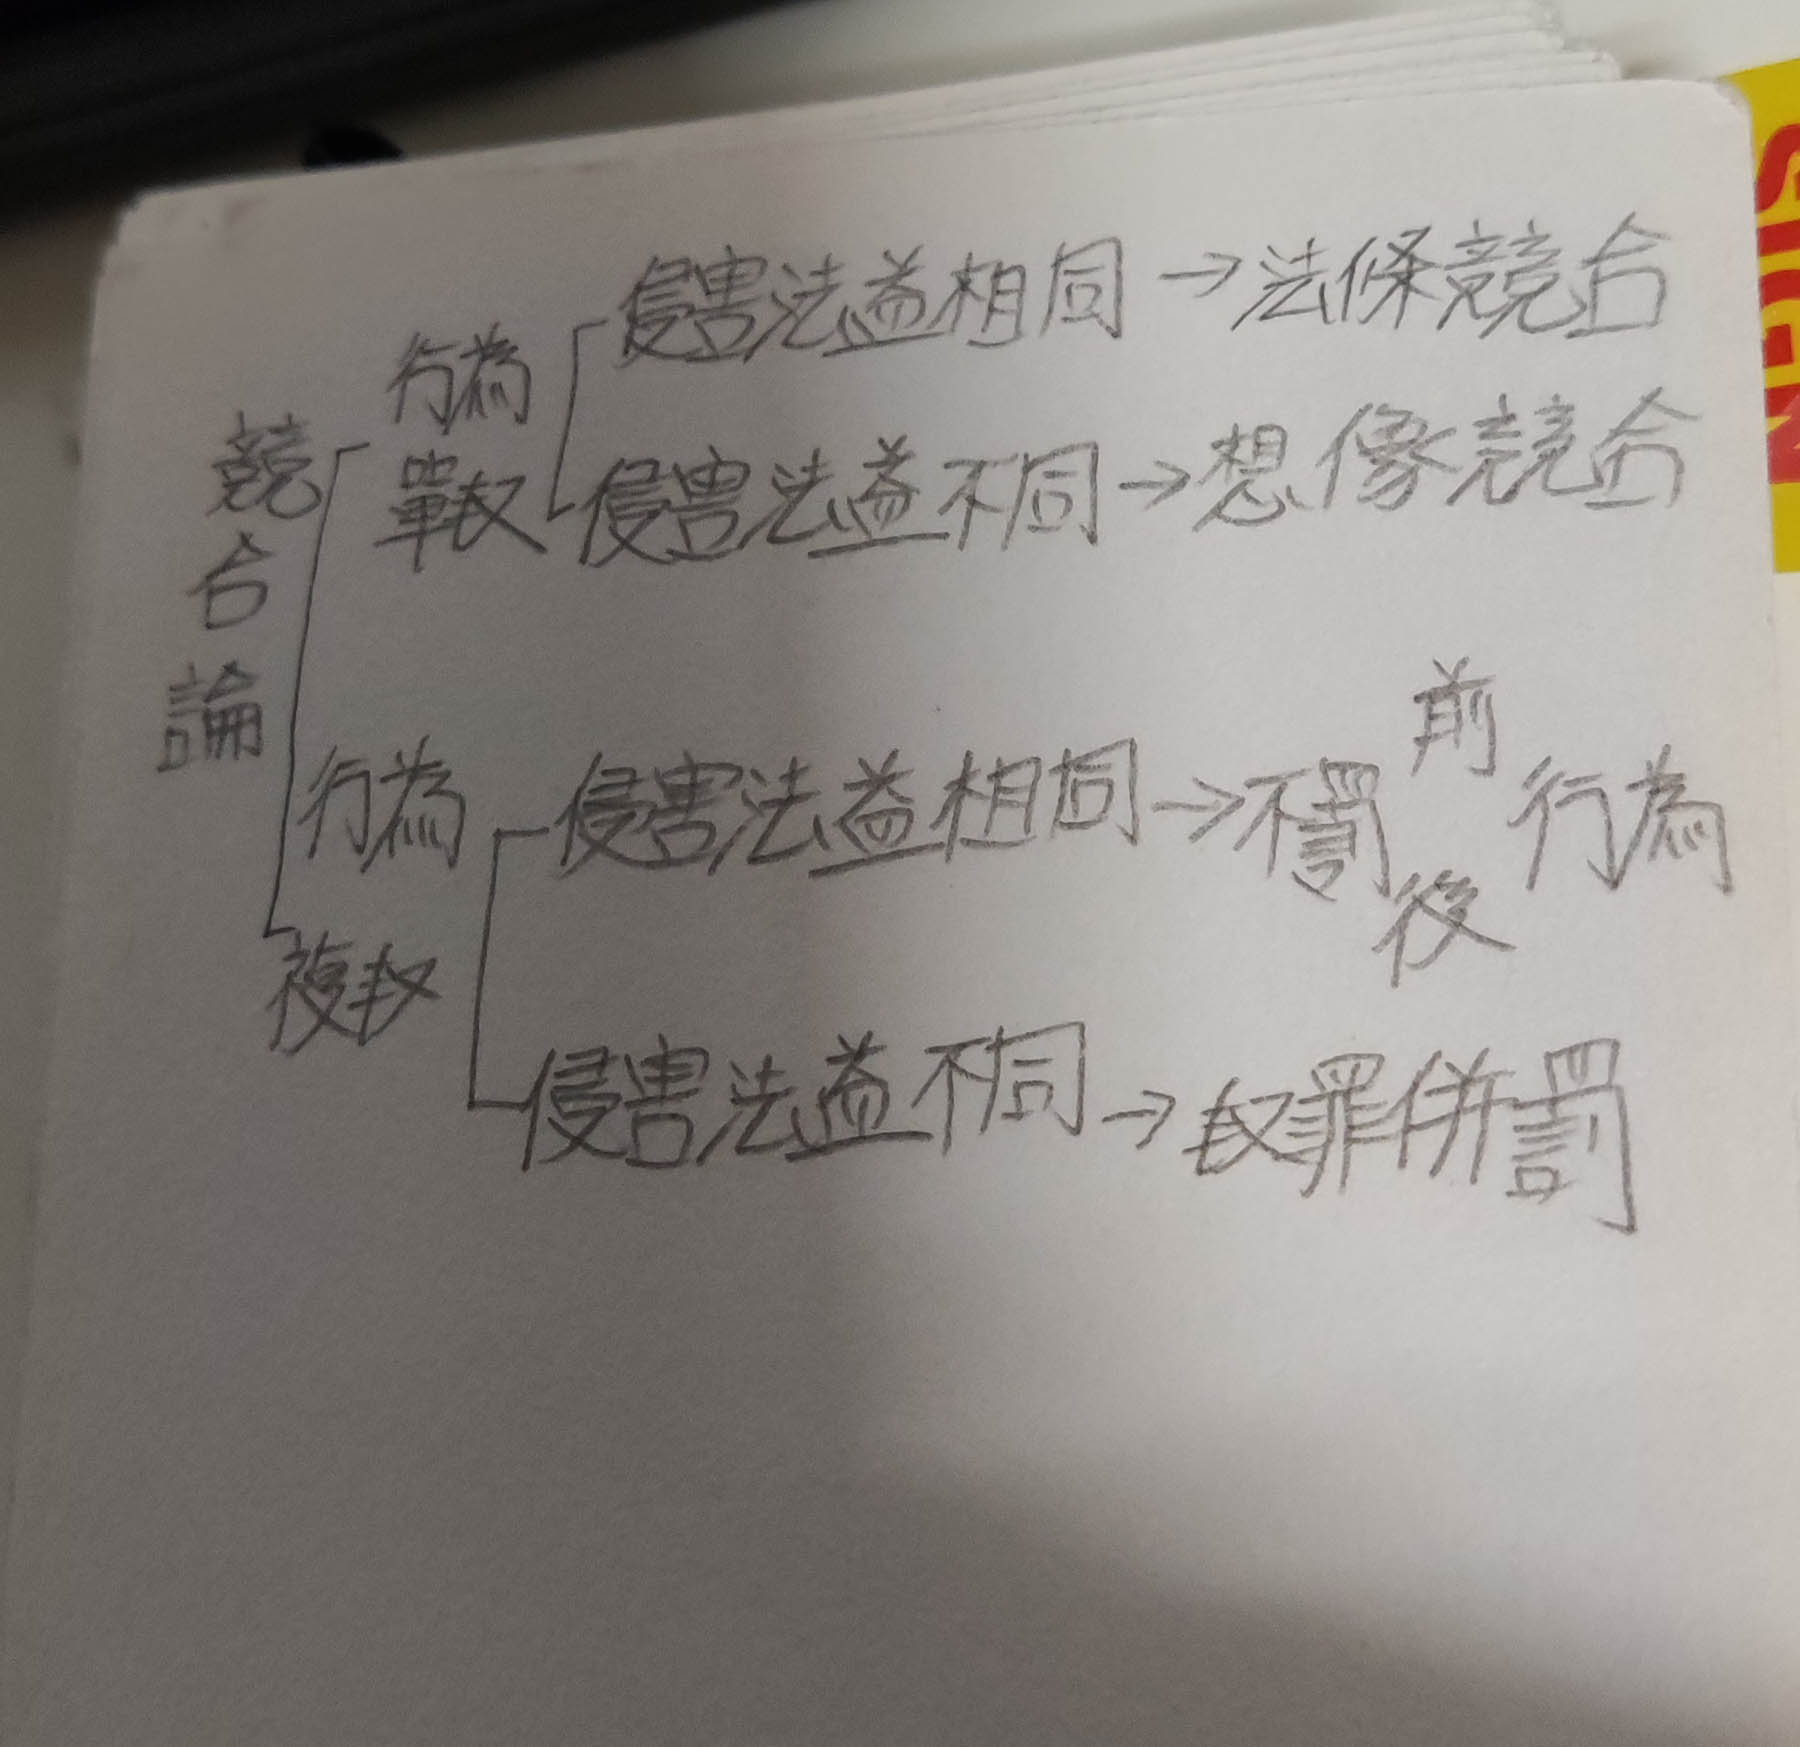 競合論
行為單数
侵害法益相同→法條競合
侵害法益不同→想像競合
行為複数
侵害法益相同→不罰前後行為
侵害法益不同→数罪併罰
SIGN